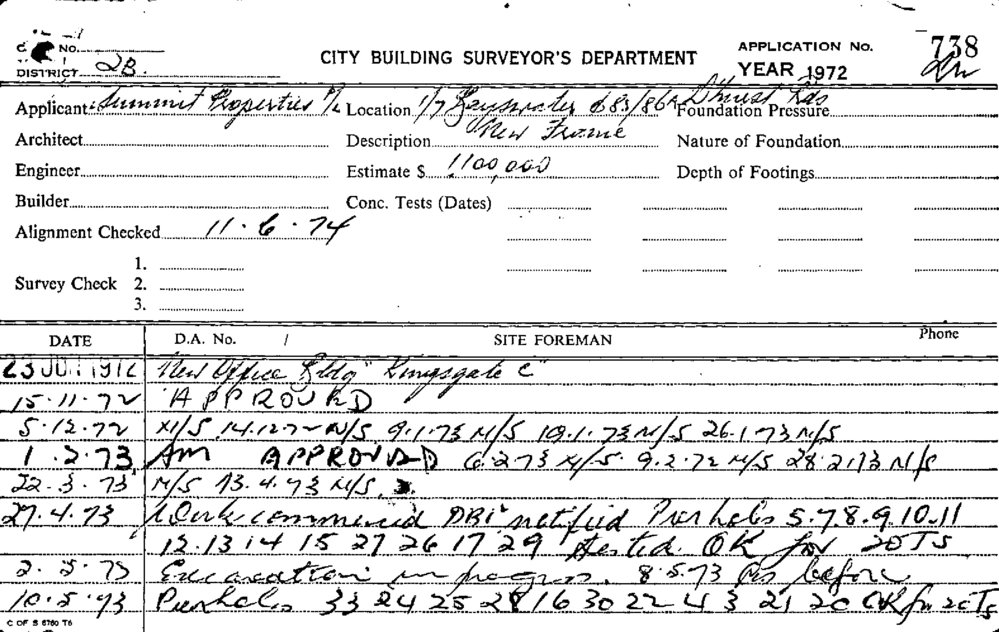 No.
CITY BUILDING SURVEYOR'S DEPARTMENT
APPLICATION No. 738
DISTRICT 2B.
YEAR 1972
Applicant Summit Properties P/L Location 1/7 Bayswater & 83/86A Rds Foundation Pressure
Architect Description New Frame Nature of Foundation
Engineer Estimate $ 1100,000 Depth of Footings
Builder Conc. Tests (Dates)
Alignment Checked 11.6.74
1.
Survey Check 2.
3.
DATE D.A. No. / SITE FOREMAN Phone
1972 New Office Bldg "Kingsgate C"
15.11.72 APPROVED
5.12.72 N/S 14.12.72 N/S 9.1.73 N/S 19.1.73 N/S 26.1.73 N/S
1.2.73 AM APPROVED 6.2.73 N/S 9.2.72 N/S 28.2.73 N/S
22.3.73 N/S 13.4.73 N/S
27.4.73 Work commenced DBI notified Pierholes 5.7.8.9.10.11
12.13 14 15 27 26 17 29 tested OK for 20TS
2.5.73 Excavation in progress. 8.5.73 As before
10.5.73 Pierholes 33 24 25 28 16 30 22 4 3 21 20 OK for 20TS
C OF S 6760 T6